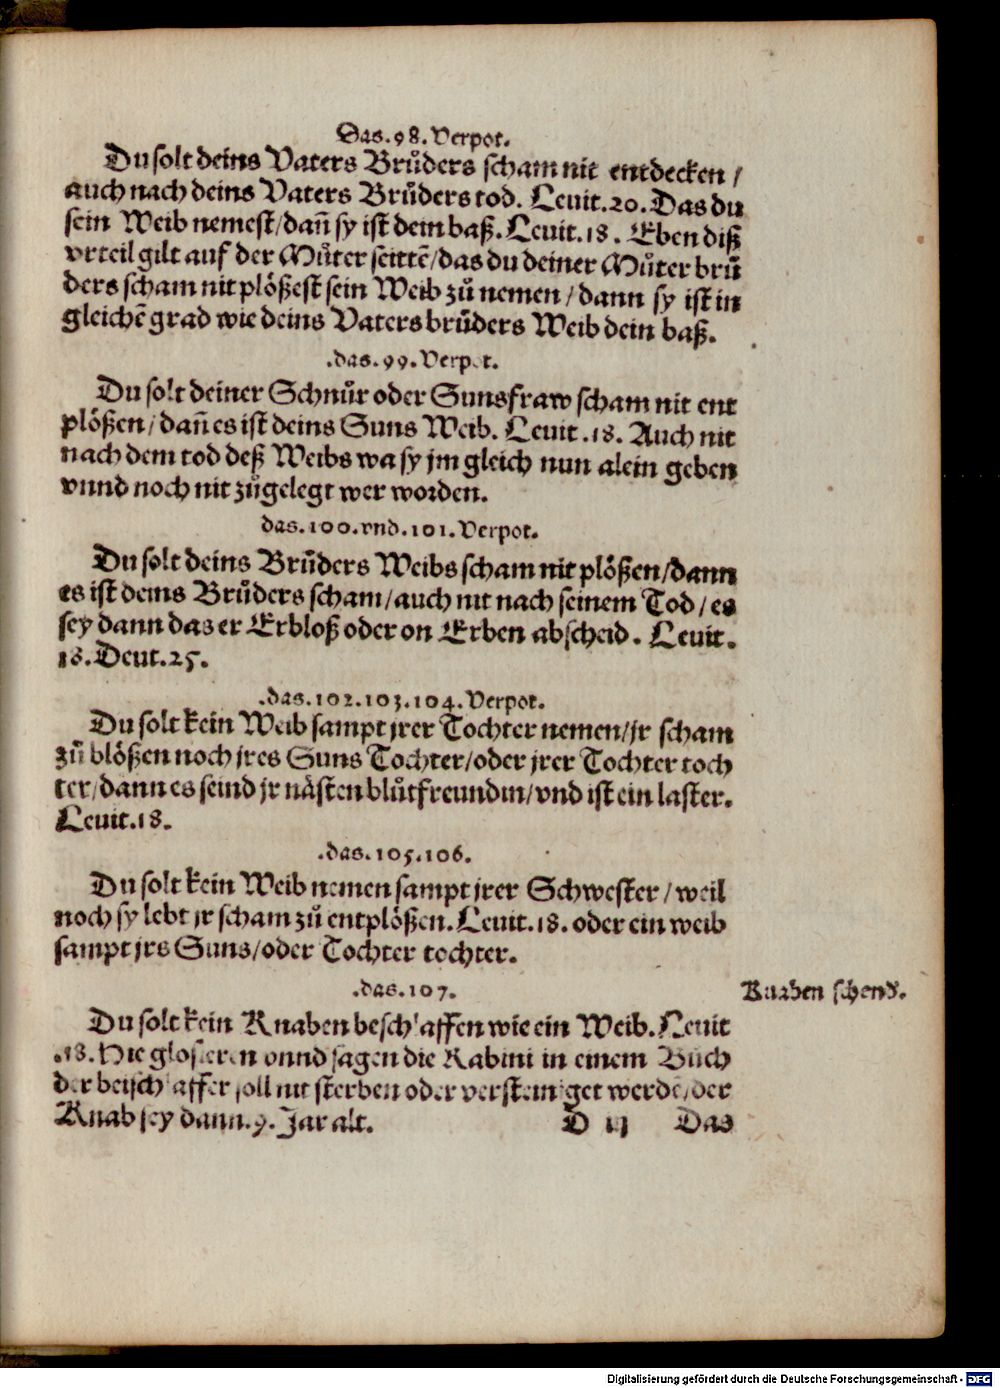 Das.98.Verpot.
Du solt deins Vaters Brůders scham nit entdecken /
auch nach deins Vaters Brůders tod. Leuit.20. Das du
sein Weib nemest/dañ sy ist dem baß. Leuit.18. Eben diß
vrteil gilt auf der Můter seittẽ/das du deiner Můter brů
ders scham nit plößest sein Weib zů nemen/dann sy ist in
gleichẽ grad wie deins Vaters brůders Weib dein baß.
.das.99.Verpot.
Du solt deiner Schnůr oder Sunsfraw scham nit ent
plößen/dañ es ist deins Suns Weib. Leuit.18. Auch nit
nach dem tod deß Weibs wa sy jm gleich nun alein geben
vnnd noch nit zůgelegt wer worden.
das.100.vnd.101.Verpot.
Du solt deins Brůders Weibs scham nit plößen/dann
es ist deins Brůders scham/auch nit nach seinem Tod/es
sey dann das er Erbloß oder on Erben abscheid. Leuit.
18.Deut.25.
.das.102.103.104.Verpot.
Du solt kein Weib sampt jrer Tochter nemen/jr scham
zů blößen noch jres Suns Tochter/oder jrer Tochter toch
ter/dann es seind jr nästen blůtfreundin/vnd ist ein laster.
Leuit.18.
.das.105.106.
Du solt kein Weib nemen sampt jrer Schwester/weil
noch sy lebt jr scham zů entplößen. Leuit.18. oder ein weib
sampt jrs Suns/oder Tochter tochter.
.das.107.
Knaben schend.
Du solt kein Knaben beschlaffen wie ein Weib. Leuit
.18. Hie glosieren vnnd sagen die Rabini in einem Buch
der beischlaffer soll nit sterben oder versteiniget werdẽ/der
Knab sey dann.9. Jar alt.
D iij Das
Digitalisierung gefördert durch die Deutsche Forschungsgemeinschaft - DFG